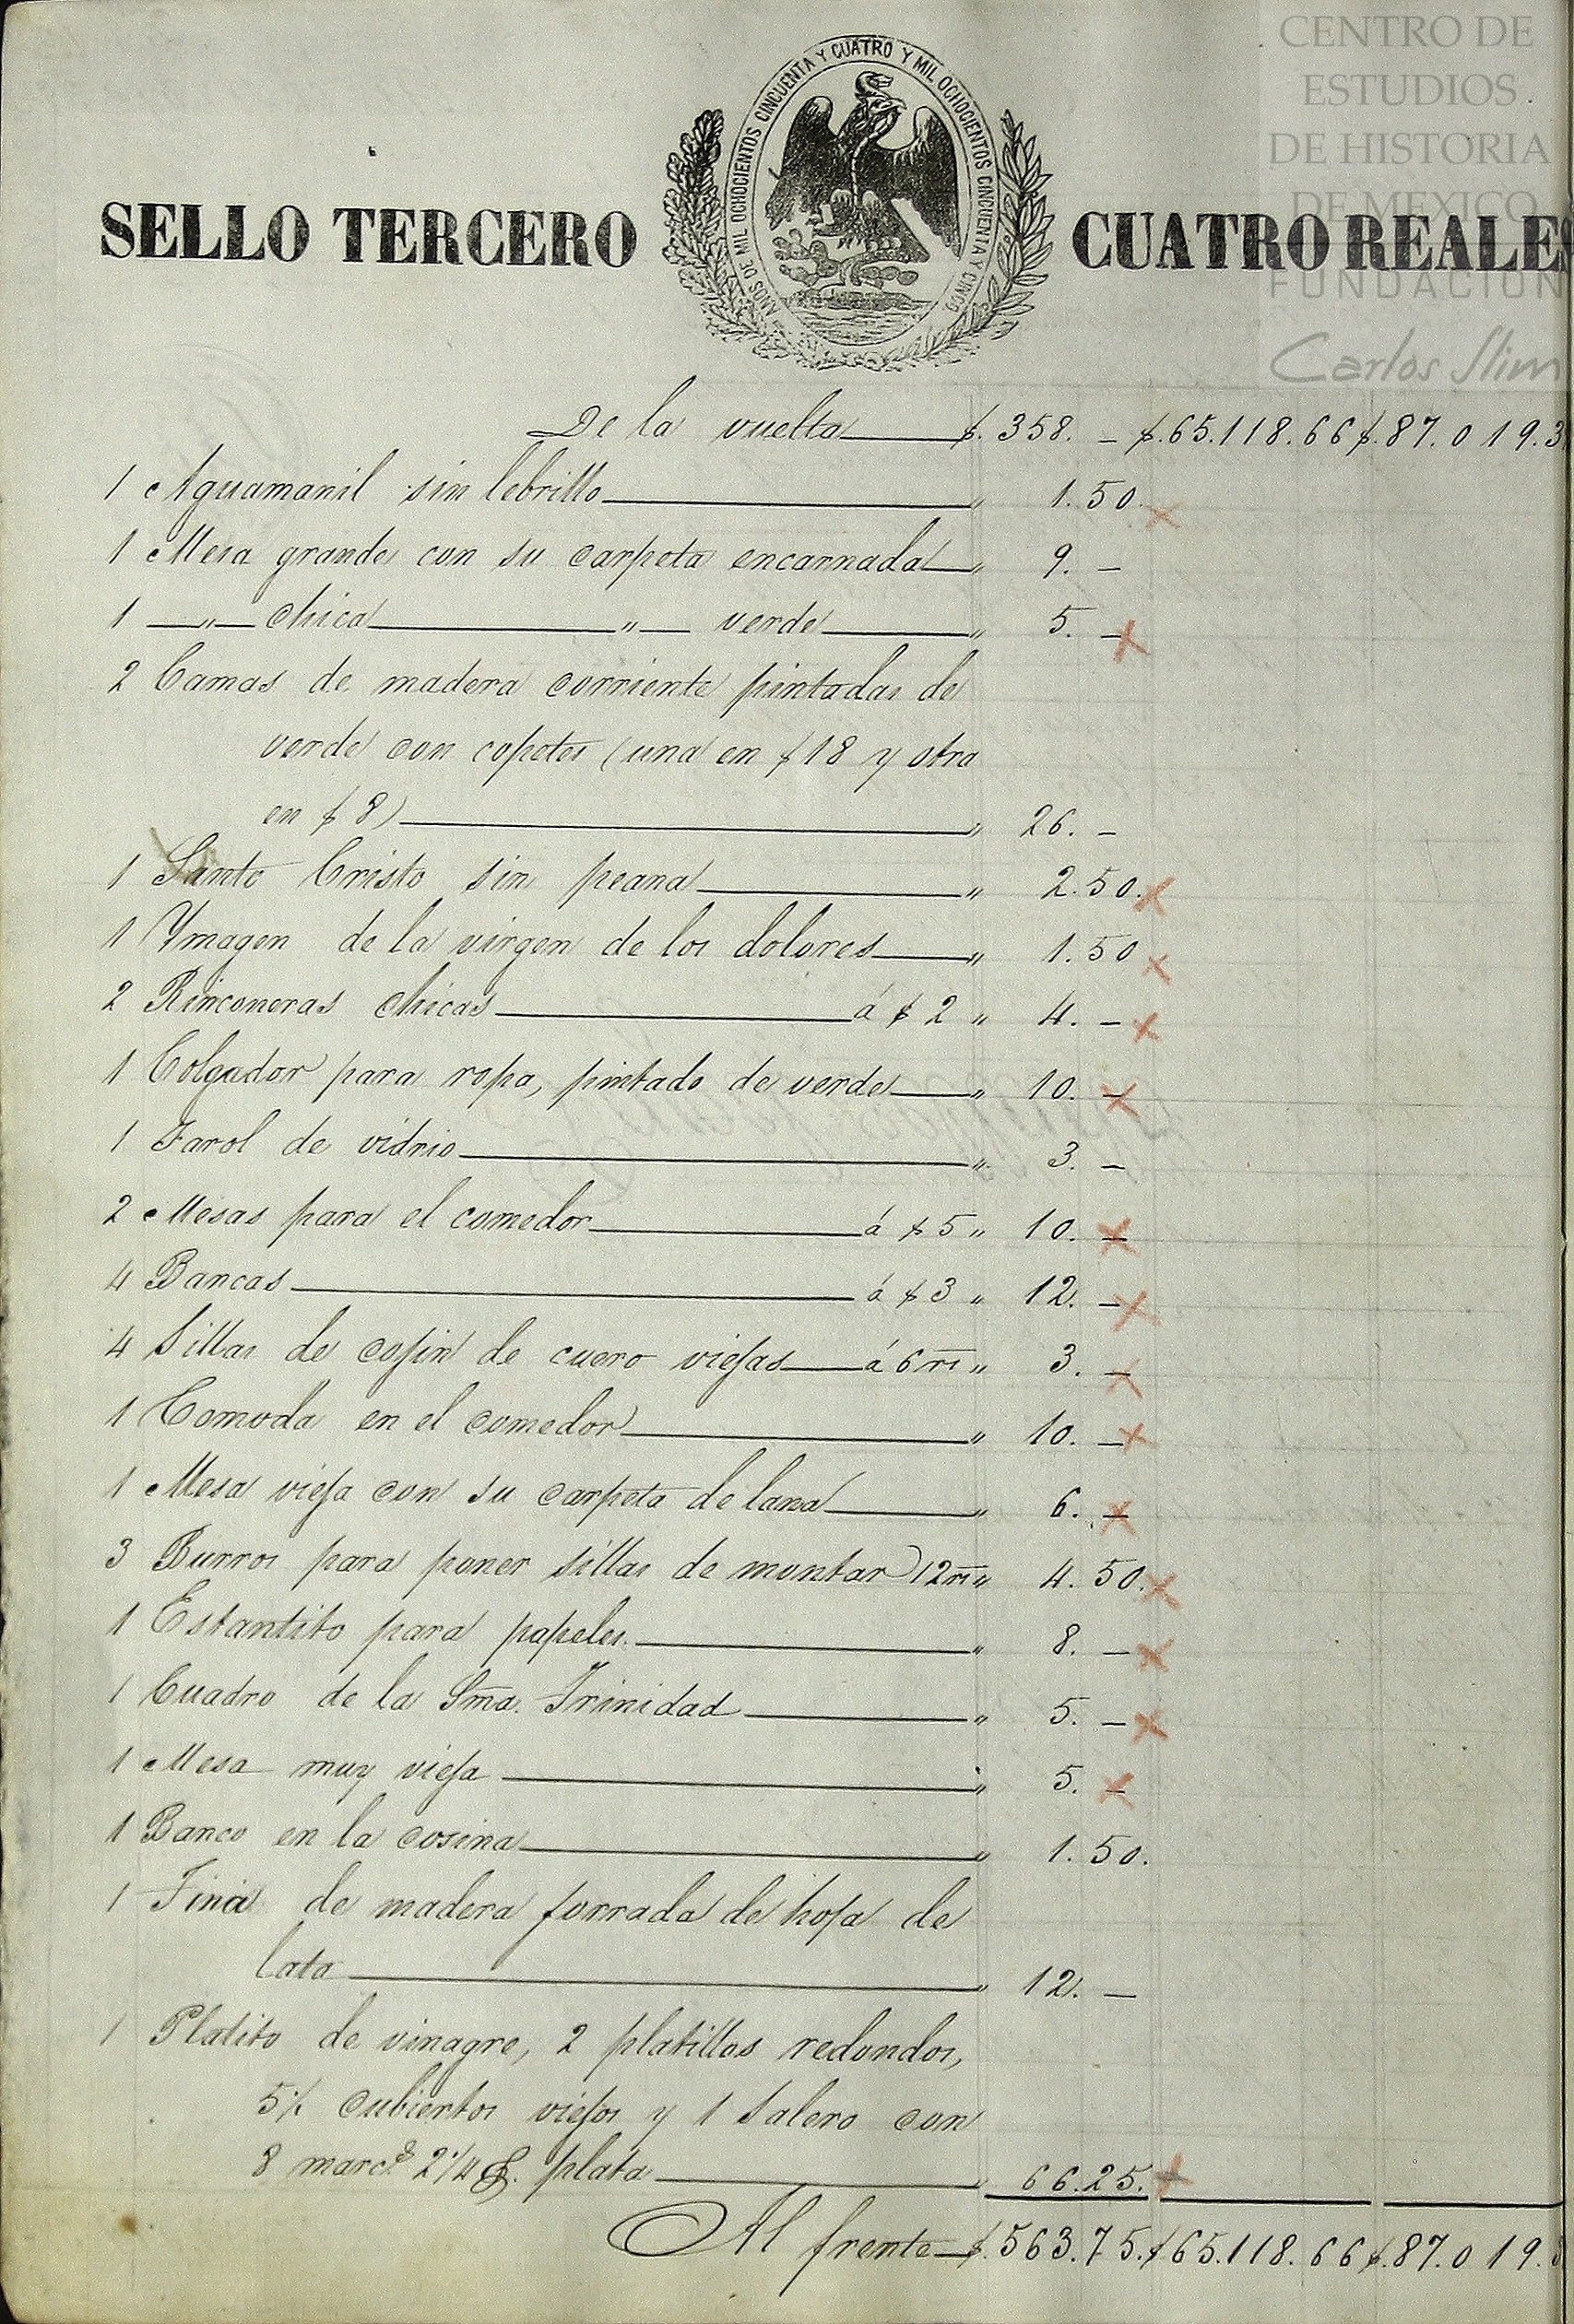 CENTRO DE
ESTUDIOS
DE HISTORIA
DE MEXICO
FUNDACION
Carlos Slim
SELLO TERCERO
AÑOS DE MIL OCHOCIENTOS CINCUENTA Y CUATRO Y MIL OCHOCIENTOS CINCUENTA Y CINCO
CUATRO REALES
De la vuelta $. 358. — $. 65.118.66 $. 87.019.3
1 Aguamanil sin lebrillo " 1.50.
1 Mesa grande con su carpeta encarnada " 9. —
1 —"— chica —"— verde " 5. —
2 Camas de madera corriente pintadas de
verde con copetes (una en $18 y otra
en $ 8) " 26. —
1 Santo Cristo sin peana " 2.50.
1 Ymagen de la virgen de los dolores " 1.50
2 Rinconeras chicas á $ 2 " 4. —
1 Colgador para ropa, pintado de verde " 10. —
1 Farol de vidrio " 3. —
2 Mesas para el comedor á $ 5 " 10. —
4 Bancas á $ 3 " 12. —
4 Sillas de cojin de cuero viejas á 6 rs " 3. —
1 Comoda en el comedor " 10. —
1 Mesa vieja con su carpeta de lana " 6. —
3 Burros para poner sillas de montar 12 rs " 4.50.
1 Estantito para papeles " 8. —
1 Cuadro de la Sma. Trinidad " 5. —
1 Mesa muy vieja " 5. —
1 Banco en la cosina " 1.50.
1 Tina de madera forrada de hoja de
lata " 12. —
1 Platito de vinagre, 2 platillos redondos,
5 1/2 cubiertos viejos y 1 salero con
8 marcs 2 1/4 plata " 66.25.
Al frente $. 563.75. $ 65.118.66 $. 87.019.3